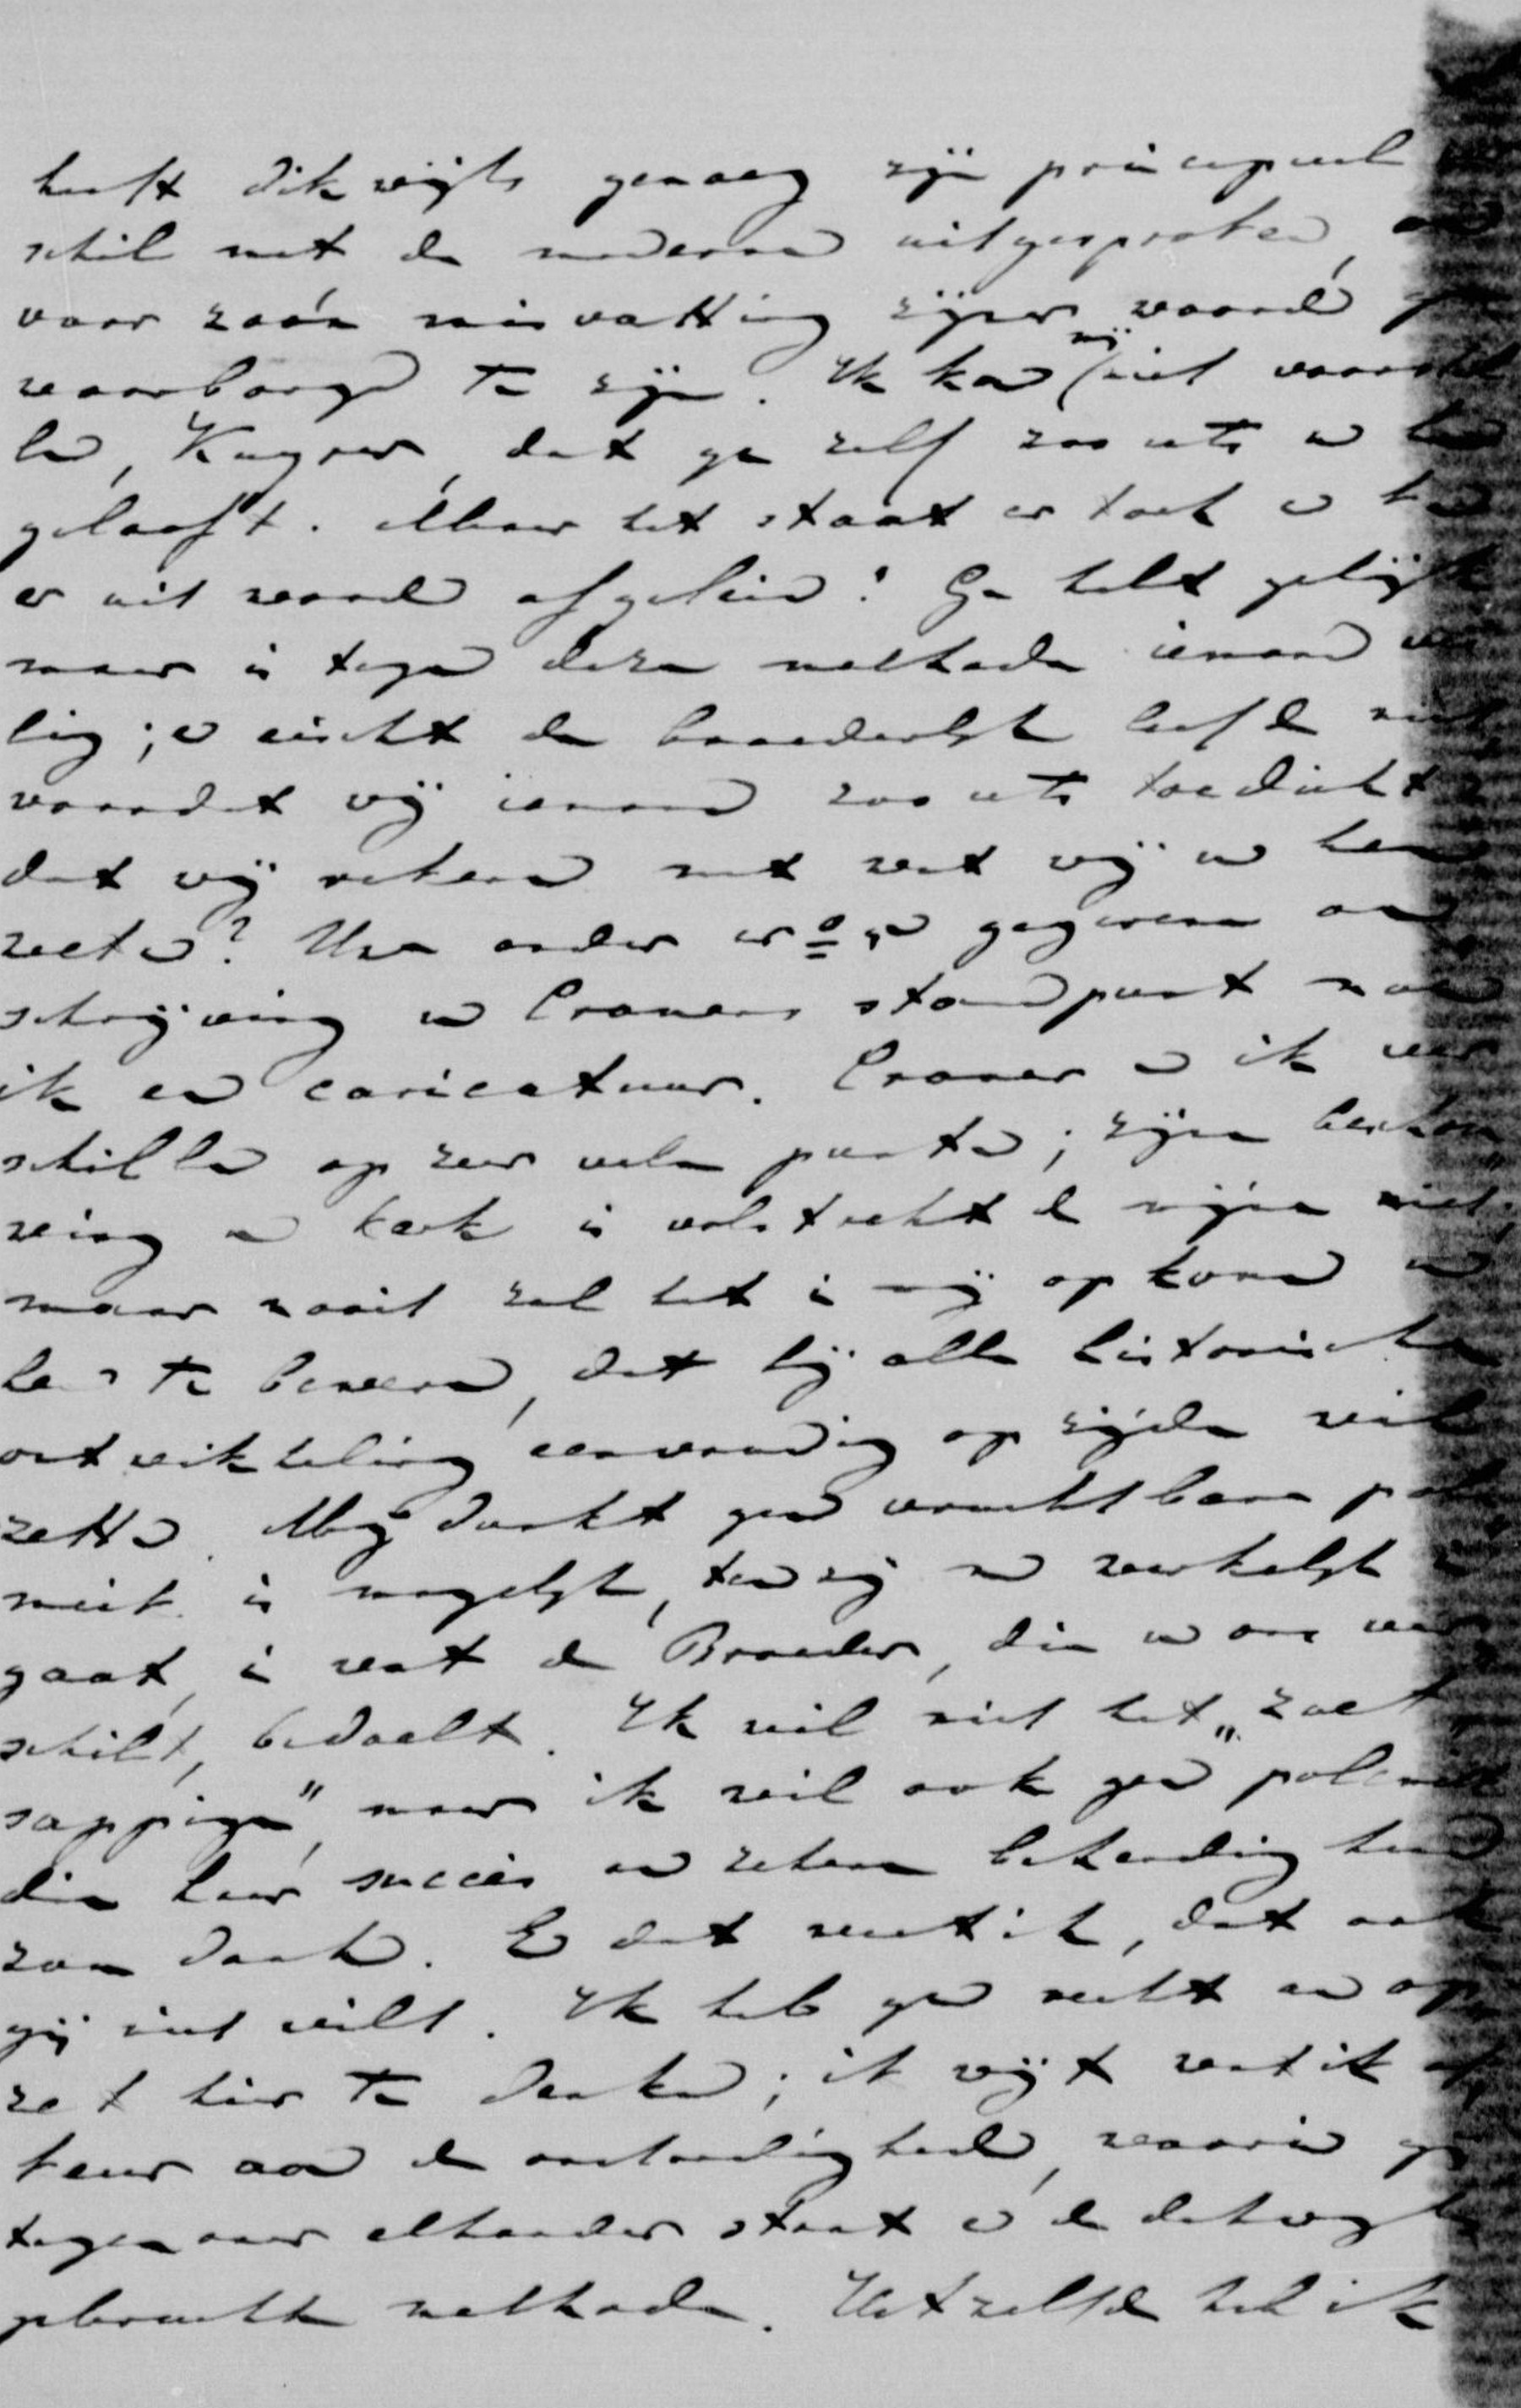 heeft dikwijls genoeg zijn principieel
schil met de modernen uitgesproken, om
voor zoo'n misvatting zijner woorden ge
waarborgd te zijn. Ik kan mij niet voorstel
len, Kuyper, dat ge zelf zoo iets van hem
gelooft. Maar het staat er toch en kan
er uit worden afgeleid! Ge hebt gelijk
maar is tegen deze methode iemand vei
lig; en eischt de broederlijke liefde niet
voordat wij iemand zoo iets toedichten
dat wij rekenen met wat wij van hem
weten? Uwe onder no 2 gegeven om
schrijving van Cramers standpunt noem
ik een caricatuur. Cramer en ik ver
schillen op zeer vele punten; zijne beschou
wing van kerk is volstrekt de mijne niet,
maar nooit zal het in mij opkomen van
hem te beweren, dat hij alle historische
ontwikkeling eenvoudig op zijde wil
zetten. Mij dunkt geen vruchtbare pole
miek is mogelijk, tenzij men werkelijk in
gaat, in wat de Broeder, die van ons ver
schilt, bedoelt. Ik wil niet het „zoet
sappige", maar ik wil ook geen polemiek
die haar succes aan zekere behendigheid
zou danken. En dat weet ik, dat ook
gij niet wilt. Ik heb geen recht aan op
zet hier te denken; ik wijt wat ik af
keur aan de omstandigheden, waarin gij
tegenover elkander staat en de dikwijls
gebruikte methode. Hetzelfde heb ik